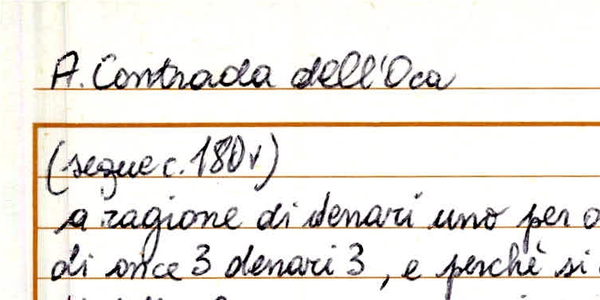 A. Contrada dell'Oca
(segue c. 180v)
a ragione di denari uno per
di once 3 denari 3, e perchè si